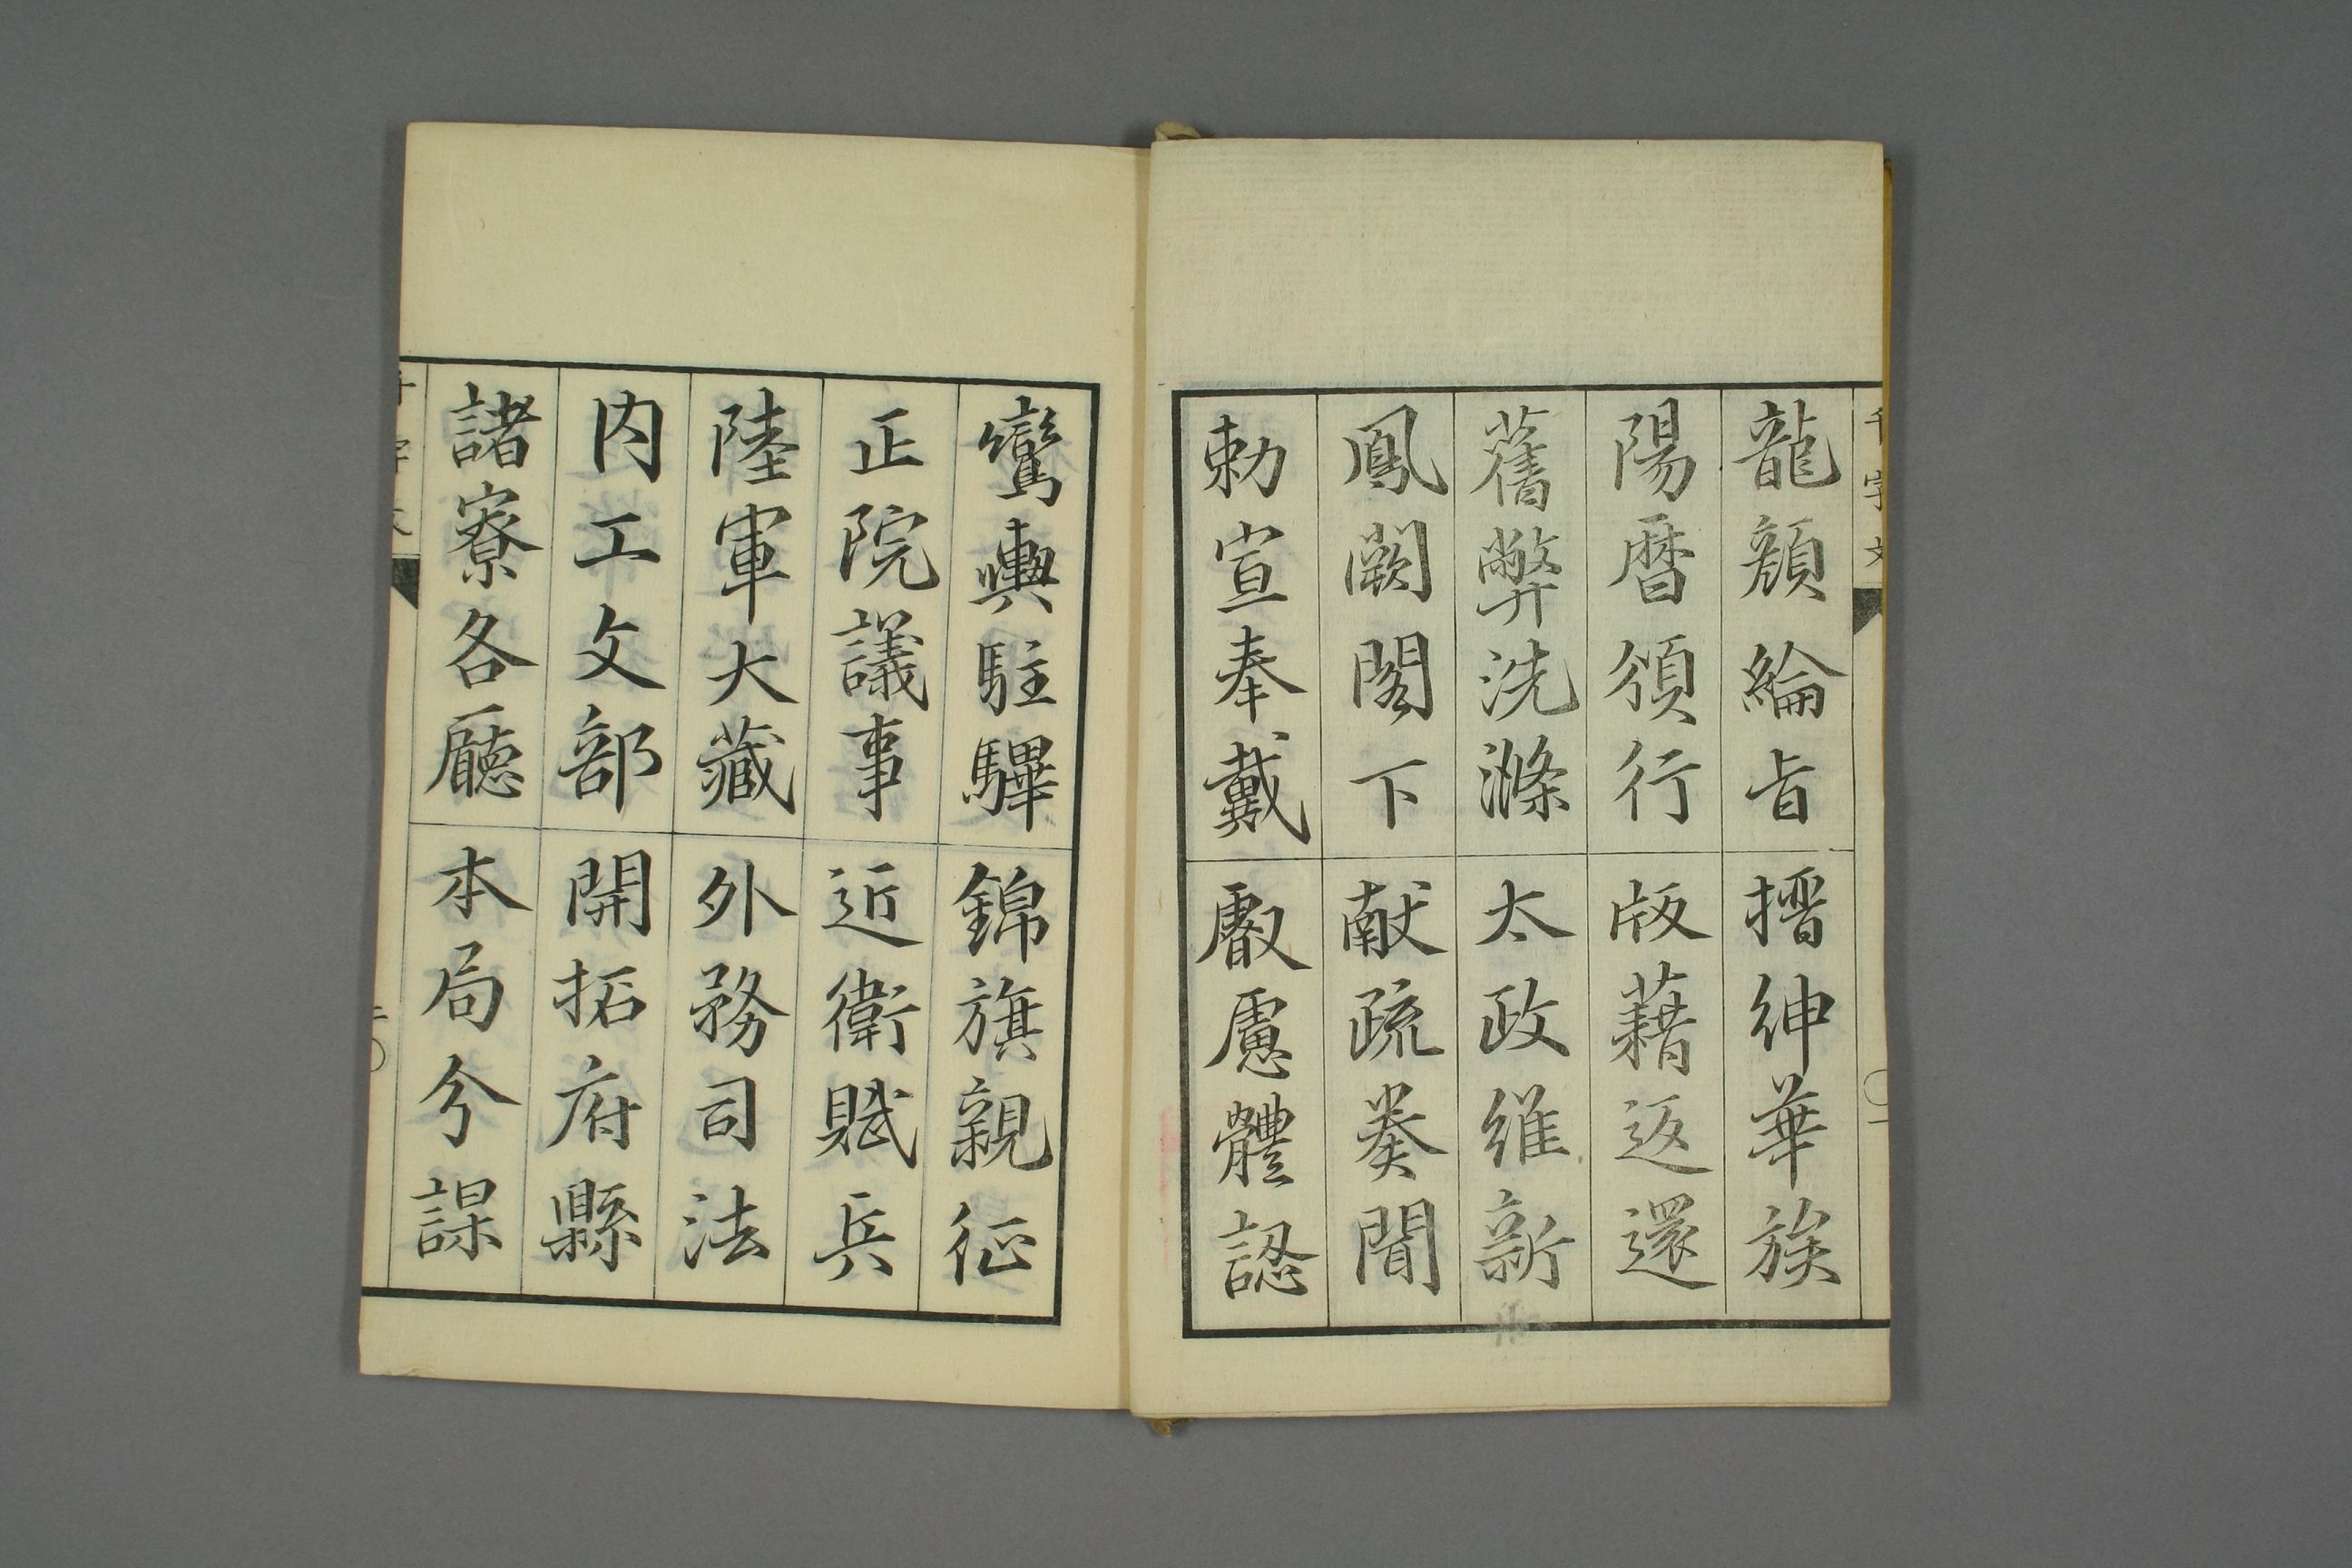 千字文
龍顔綸旨 搢紳華族
陽暦頒行 版藉返還
舊弊洗滌 太政維新
鳳闕閣下 献疏奏聞
勅宣奉戴 叡慮體認
鸞輿駐驆 錦旗親征
正院議事 近衛賦兵
陸軍大藏 外務司法
内工文部 開拓府縣
諸寮各廳 本局分課
千字文